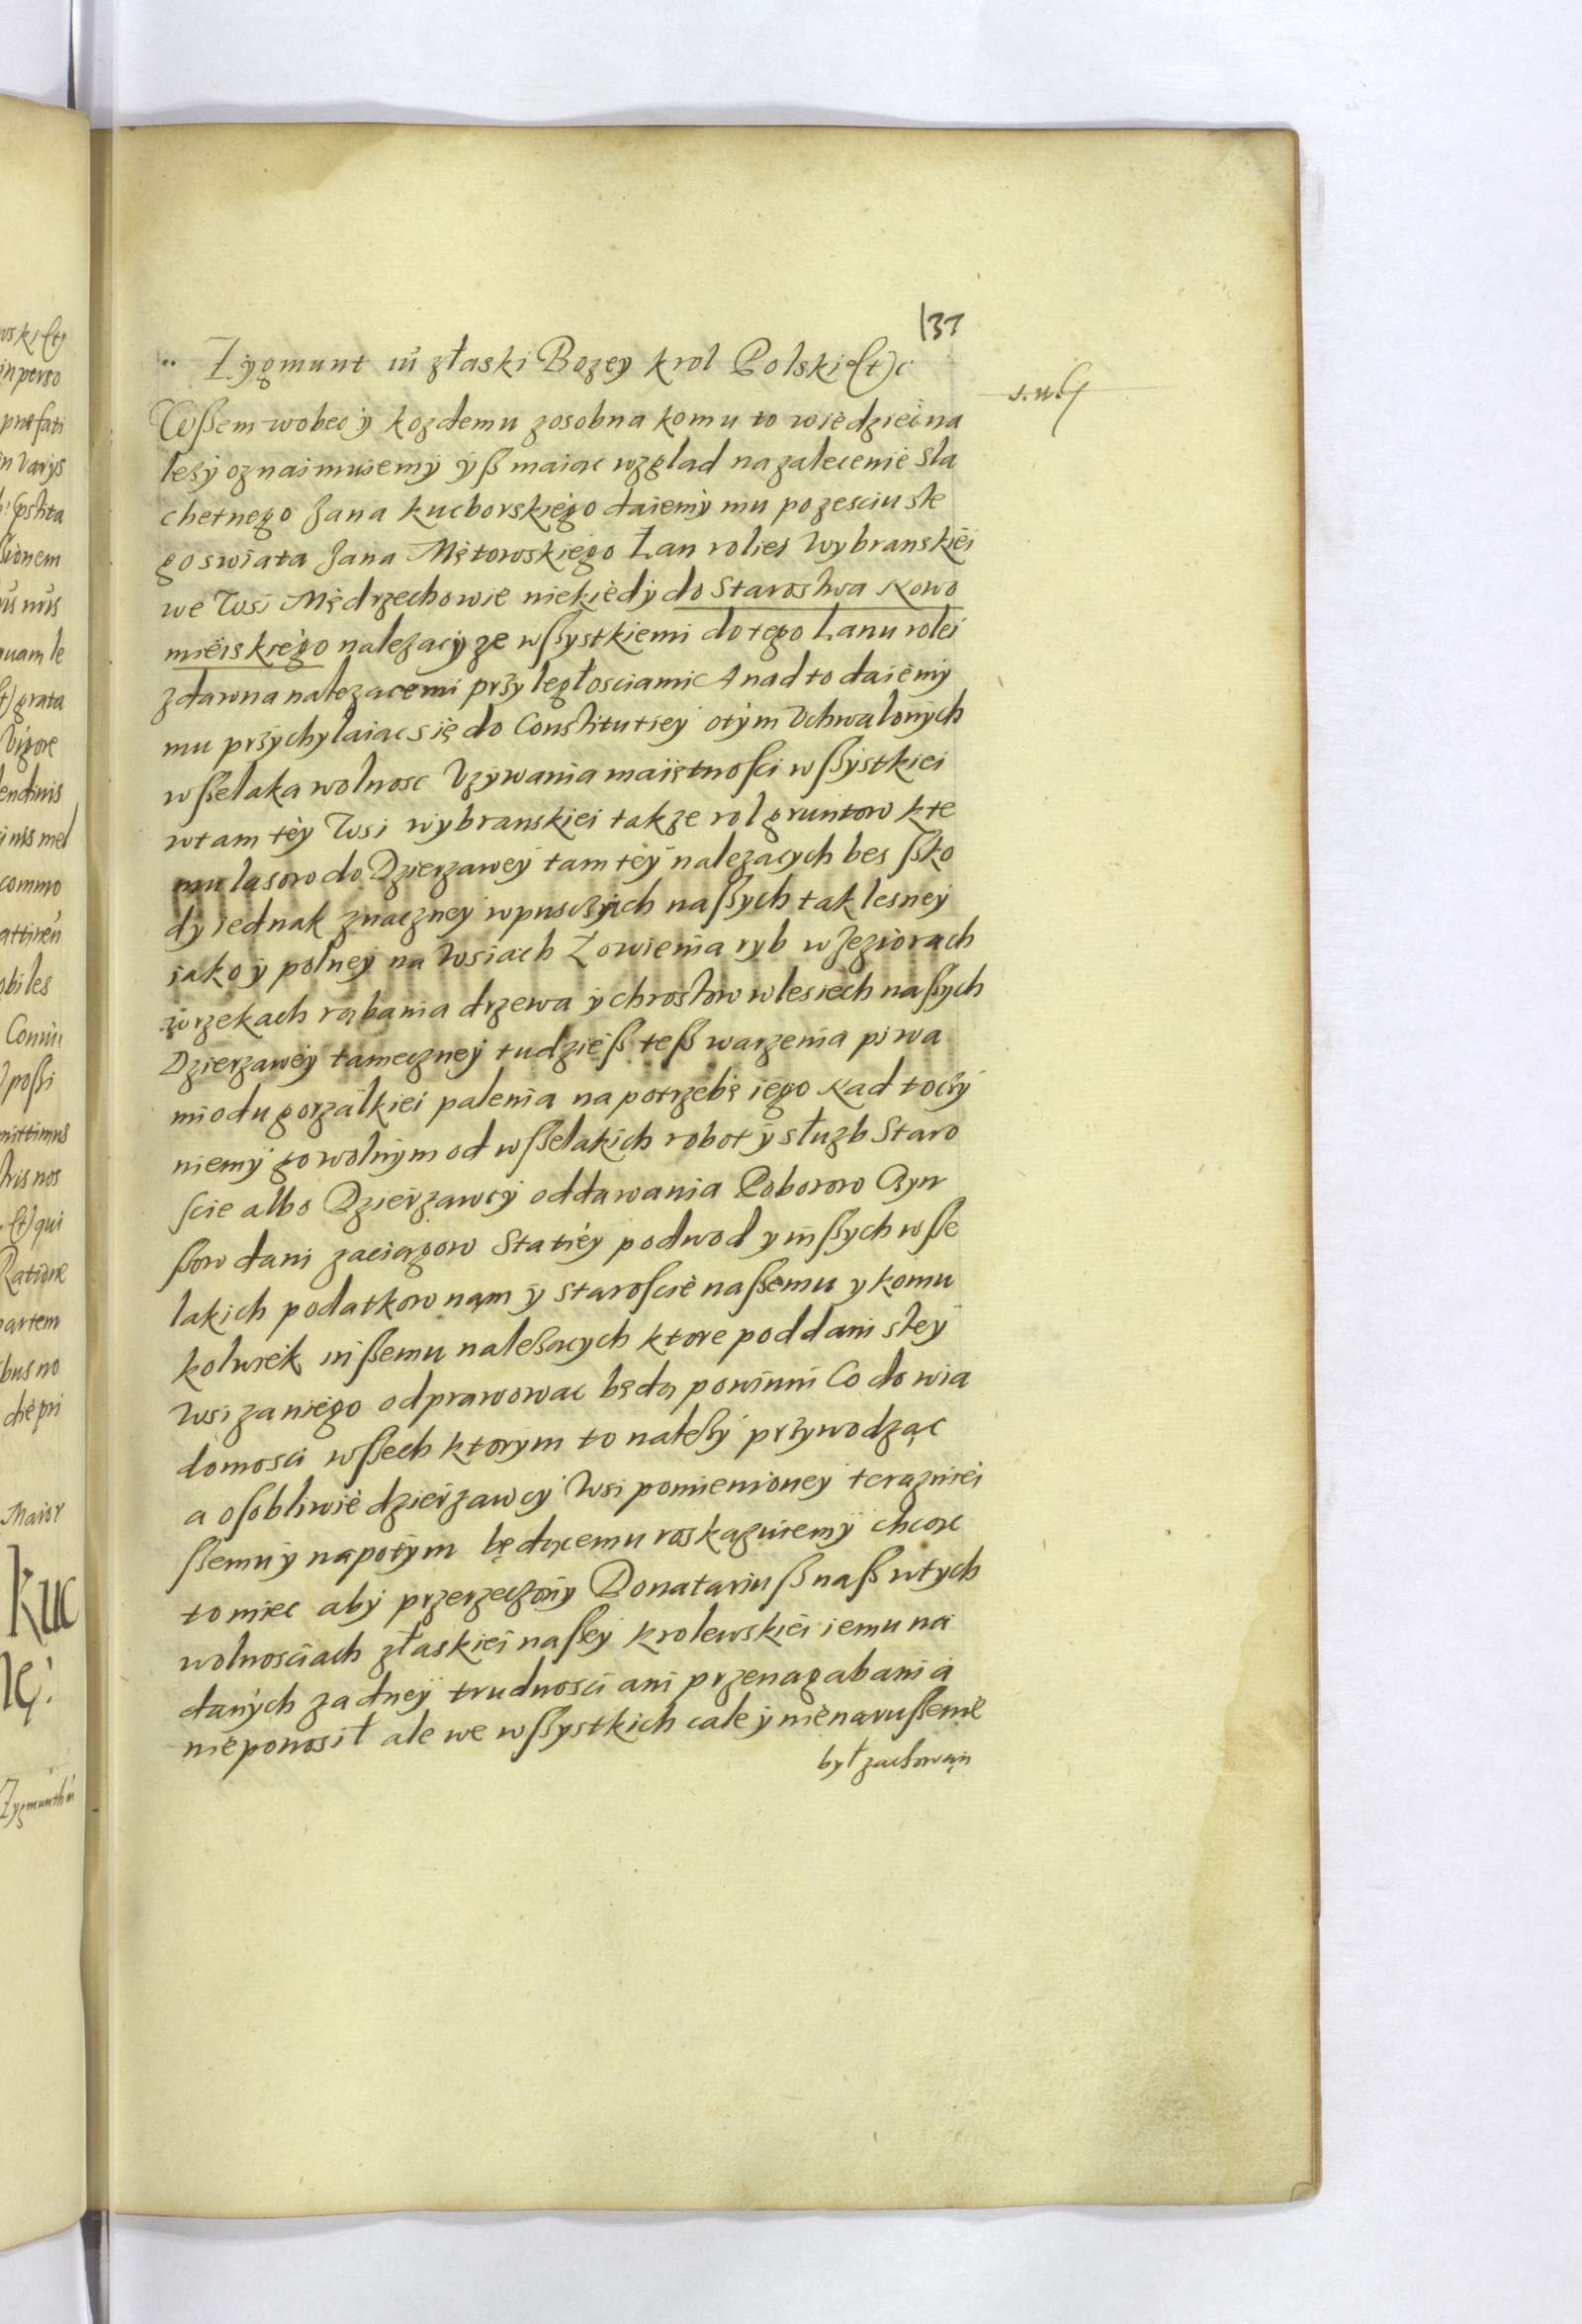 137
Zygmunt III z łaski Bozey krol Polski (et)c
Wßem wobec y kozdemu zosobna komu to wiedziec na
lezy oznaimuiemy yß maiac wzglad na zalecenie Sla
chetnego Jana Kucborskiego daiemy mu po zesciu ste
go swiata Jana Mętowskiego Łan roliei Wybranskiei
we Wsi Mędrzechowie niekiedy do Starostwa Nowo
mieiskiego nalezacy ze wßystkiemi do tego Łanu rolei
zdawna nalezacemi przyległosciami A nad to daiemy
mu przychylaiac się do Constitutiey otym Vchwalonych
wßelaka wolnosc Vzywania maiętnosci wßystkiei
w tam tey Wsi wybranskiei takze rol gruntow kte
mu lasow do Dzierzawey tam tey nalezacych bes ßko
dy iednak znaczney w pusczach naßych tak lesney
iako y polney na Wsiach Łowienia ryb w Jeziorach
w rzekach rąbania drzewa y chrostow w lesiech naßych
Dzierzawey tameczney tudzieß teß warzenia piwa
miodu gorzałkiei palenia na potrzebę iego Nad to czy
niemy go wolnym od wßelakich robot y słuzb Staro
scie albo Dzierzawcy oddawania Poborow Czyn
ßow dani zaciągow Statiey podwod y inßych wße
lakich podatkow nam y staroscie naßemu y komu
kolwiek inßemu naleßacych ktore poddani stey
Wsi za niego odprawowac będą powinni Co do wia
domosci wßech ktorym to naleßy przywodząc
a osobliwie dzierzawcy Wsi pomienioney terazniei
ßemu y napotym będącemu roskazuiemy chcąc
to miec aby przerzeczony Donatariuß naß w tych
wolnosciach z łaskiei naßey krolewskiei iemu na
danych zadney trudnosci ani przenagabania
nie ponosił ale we wßystkich cale y nienarußenie
był zachowan